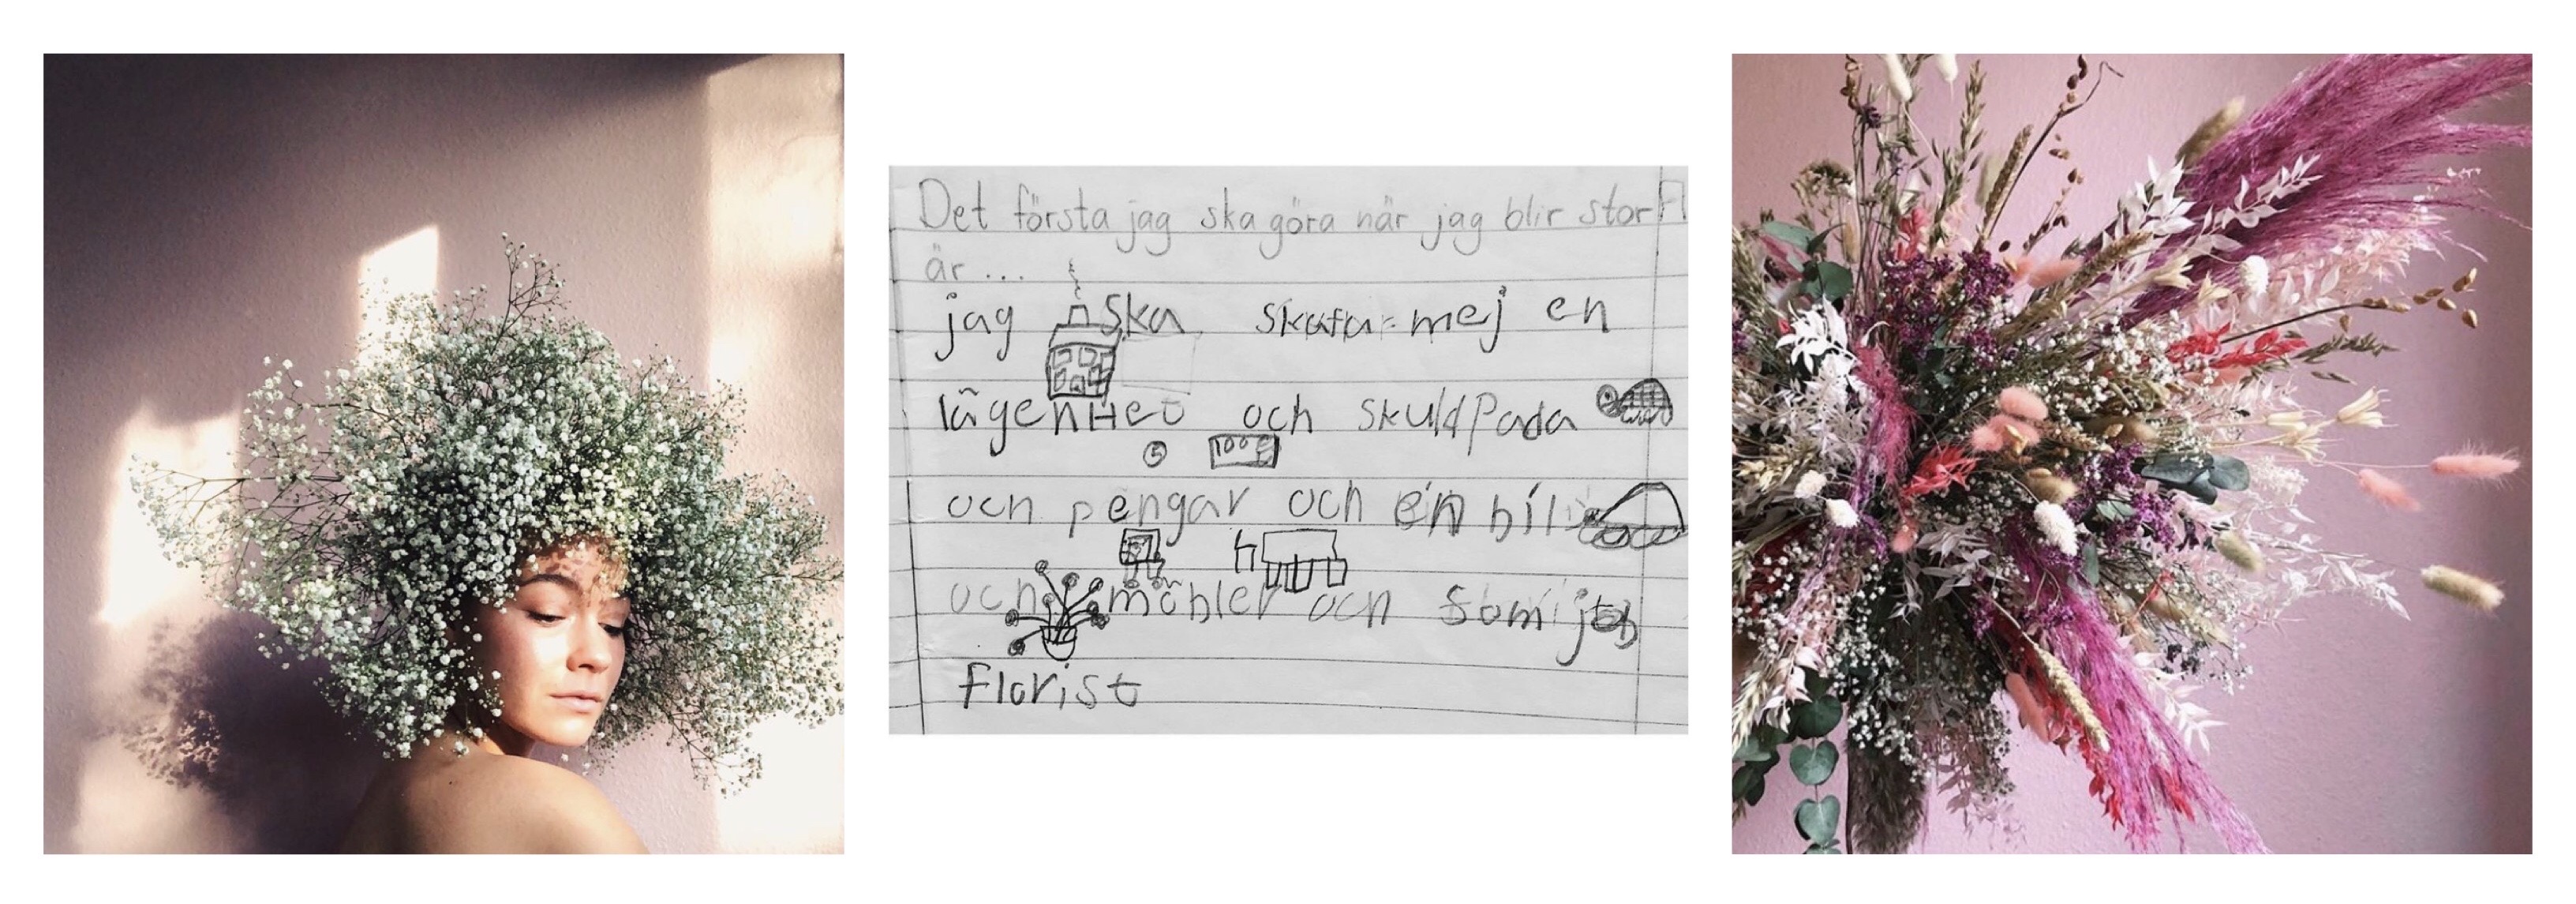 Det första jag ska göra när jag blir stor
är...
jag ska skafa mej en
lägenHet och skuldpada
5 100
och pengar och en bil
och möbler och som jobb
florist